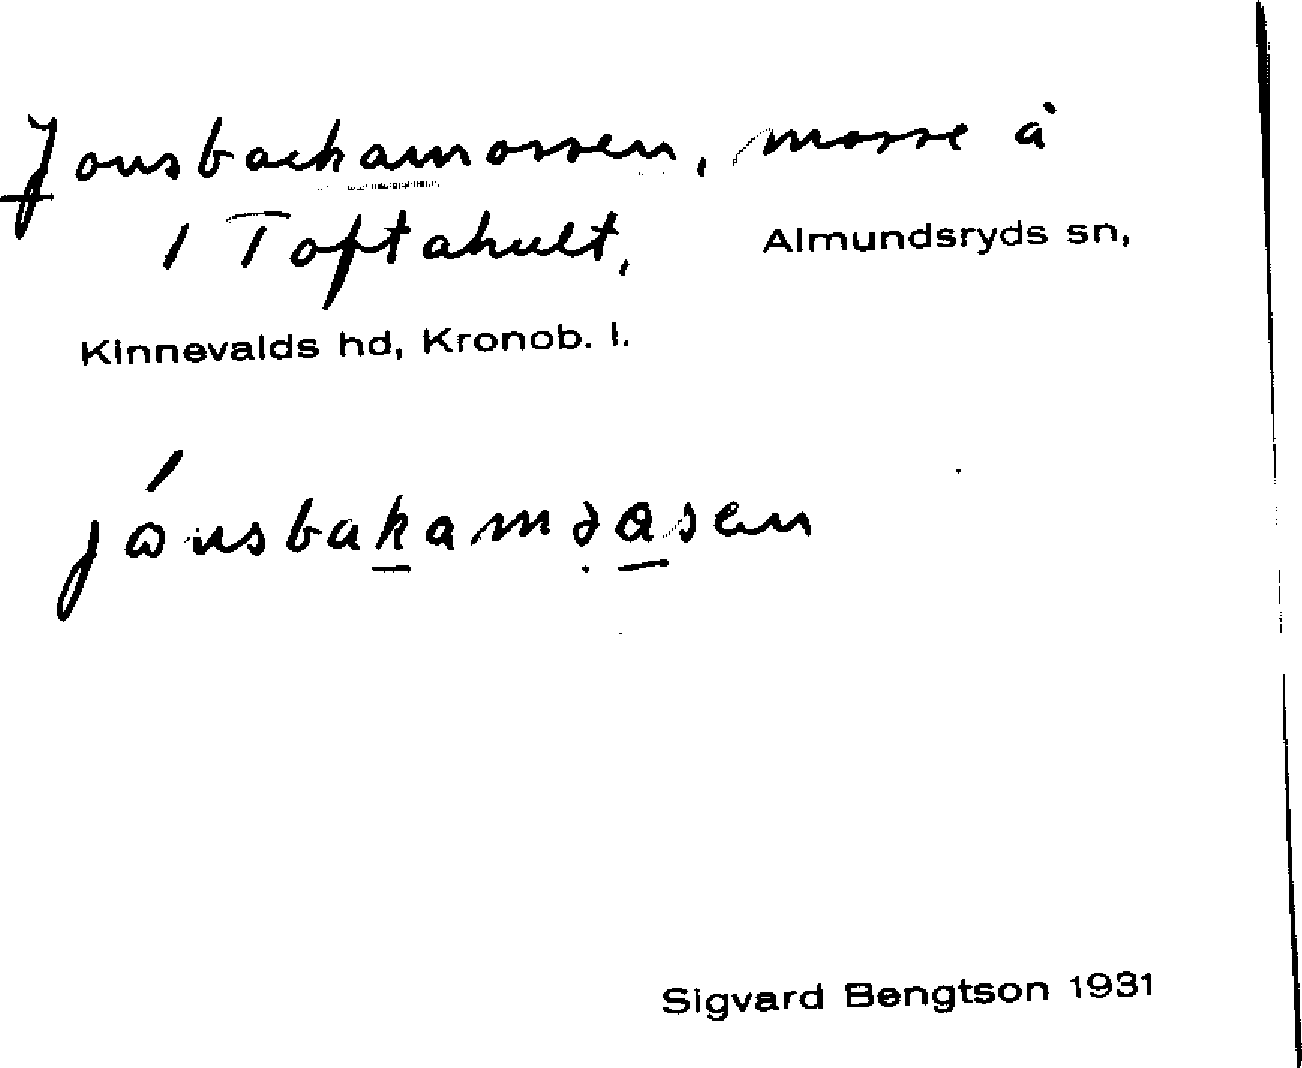 Jonsbackamossen, mosse å
1 Toftahult, Almundsryds sn,
Kinnevalds hd, Kronob. l.
Sigvard Bengtson 1931